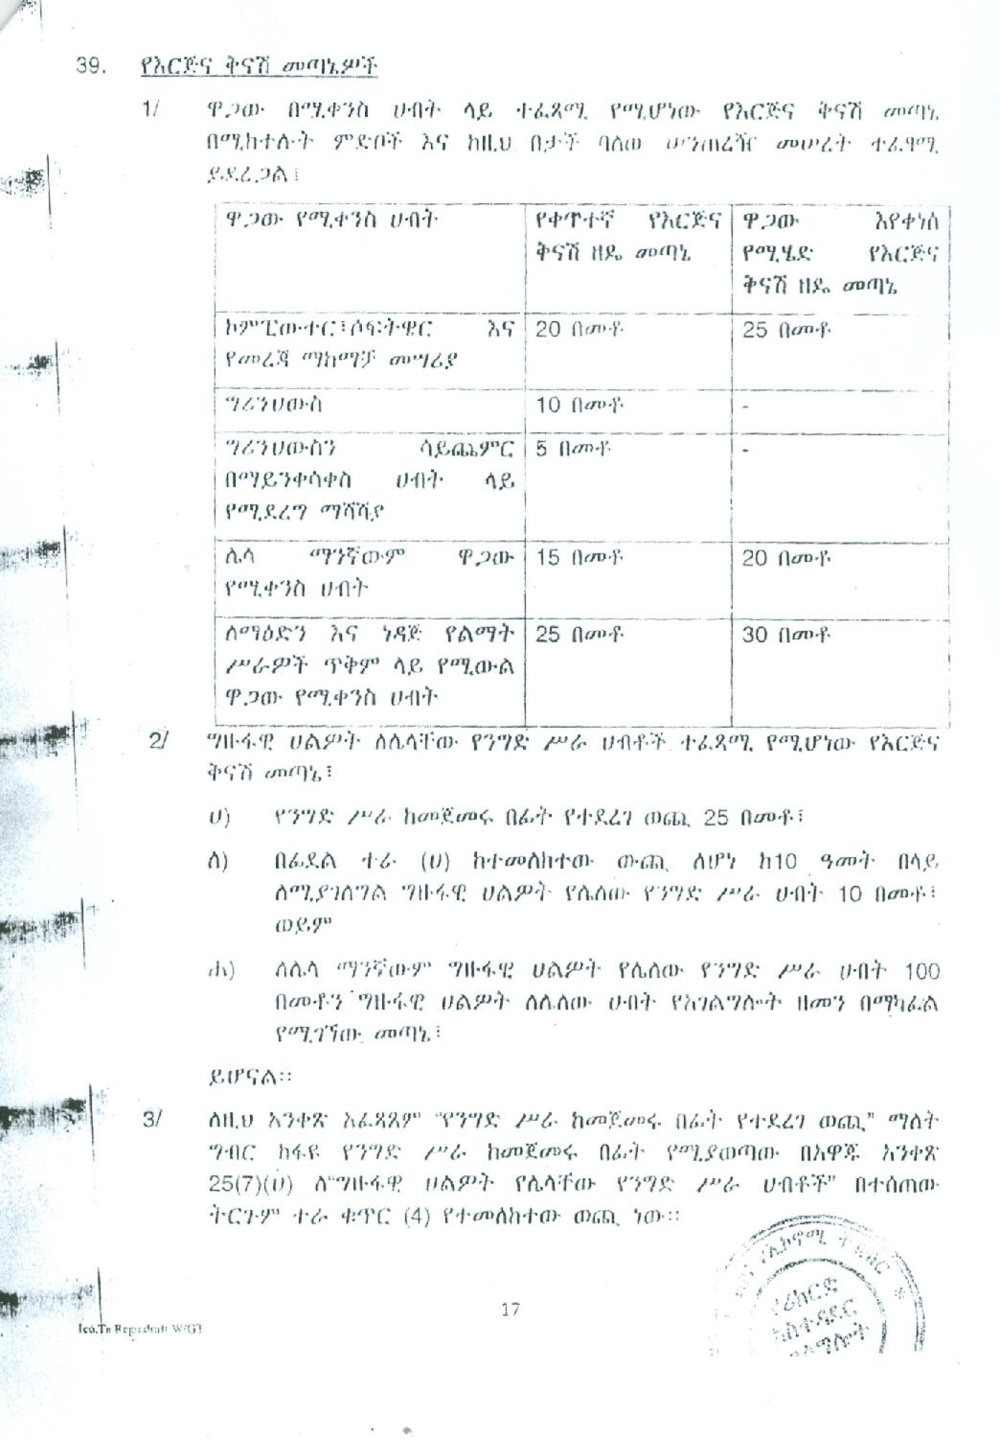 39. የእርጅና ቅናሽ መጣኔዎች
1/ ዋጋው በሚቀንስ ሀብት ላይ ተፈጻሚ የሚሆነው የእርጅና ቅናሽ መጣኔ
በሚከተሉት ምድቦች እና ከዚህ በታች ባለው ሠንጠረዥ መሠረት ተፈፃሚ
ይደረጋል፤
ዋጋው የሚቀንስ ሀብት
የቀጥተኛ የእርጅና
ቅናሽ ዘዴ መጣኔ
ዋጋው እየቀነሰ
የሚሄድ የእርጅና
ቅናሽ ዘዴ መጣኔ
ኮምፒውተር፣ሶፍትዌር እና
የመረጃ ማከማቻ መሣሪያ
20 በመቶ
25 በመቶ
ግሪንሀውስ
10 በመቶ
-
ግሪንሀውስን ሳይጨምር
በማይንቀሳቀስ ሀብት ላይ
የሚደረግ ማሻሻያ
5 በመቶ
-
ሌላ ማንኛውም ዋጋው
የሚቀንስ ሀብት
15 በመቶ
20 በመቶ
ለማዕድን እና ነዳጅ የልማት
ሥራዎች ጥቅም ላይ የሚውል
ዋጋው የሚቀንስ ሀብት
25 በመቶ
30 በመቶ
2/ ግዙፋዊ ሀልዎት ለሌላቸው የንግድ ሥራ ሀብቶች ተፈጻሚ የሚሆነው የእርጅና
ቅናሽ መጣኔ፣
ሀ) የንግድ ሥራ ከመጀመሩ በፊት የተደረገ ወጪ 25 በመቶ፤
ለ) በፊደል ተራ (ሀ) ከተመለከተው ውጪ ለሆነ ከ10 ዓመት በላይ
ለሚያገለግል ግዙፋዊ ሀልዎት የሌለው የንግድ ሥራ ሀብት 10 በመቶ፤
ወይም
ሐ) ለሌላ ማንኛውም ግዙፋዊ ሀልዎት የሌለው የንግድ ሥራ ሀብት 100
በመቶን ግዙፋዊ ሀልዎት ለሌለው ሀብት የአገልግሎት ዘመን በማካፈል
የሚገኘው መጣኔ፤
ይሆናል።
3/ ለዚህ አንቀጽ አፈጻጸም "የንግድ ሥራ ከመጀመሩ በፊት የተደረገ ወጪ" ማለት
ግብር ከፋዩ የንግድ ሥራ ከመጀመሩ በፊት የሚያወጣው በአዋጁ አንቀጽ
25(7)(ሀ) ለ"ግዙፋዊ ሀልዎት የሌላቸው የንግድ ሥራ ሀብቶች" በተሰጠው
ትርጉም ተራ ቁጥር (4) የተመለከተው ወጪ ነው።
የሪከርድ
አስተዳደር
17